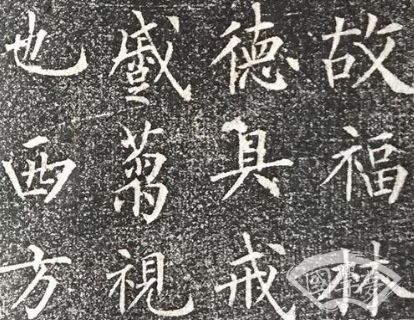 故福林
德具戒
視
也西方